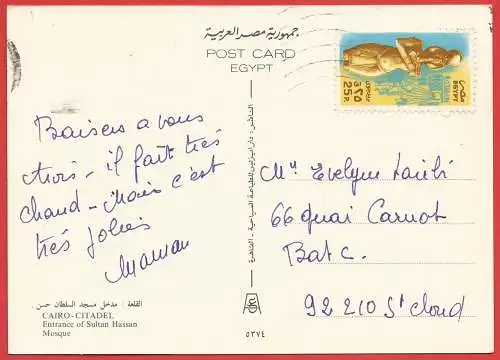 جمهورية مصر العربية
POST CARD
EGYPT
مصر
EGYPT
25 P.
Baisers a vous
trois - il fait très
chaud - Mais c'est
très jolies
Maman
Evelyne
66 Quai Carnot
Bat C.
92210 St Cloud
القلعة : مدخل مسجد السلطان حسن .
CAIRO - CITADEL
Entrance of Sultan Hassan
Mosque
٥٣٧٤